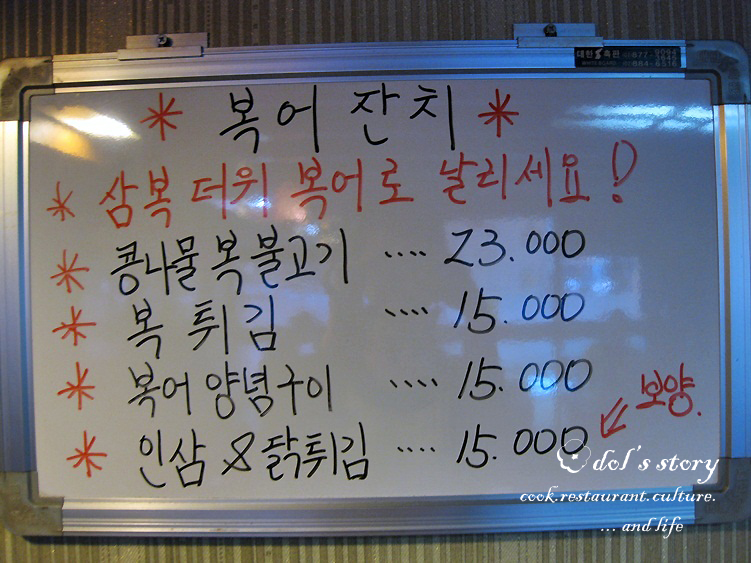 * 복어 잔치 *
* 삼복 더위 복어로 날리세요!
* 콩나물 복 불고기 .... 23.000
* 복 튀김 .... 15.000
* 복어 양념구이 .... 15.000
* 인삼 & 닭튀김 .... 15.000
보양.
dol's story
cook.restaurant.culture.
... and life